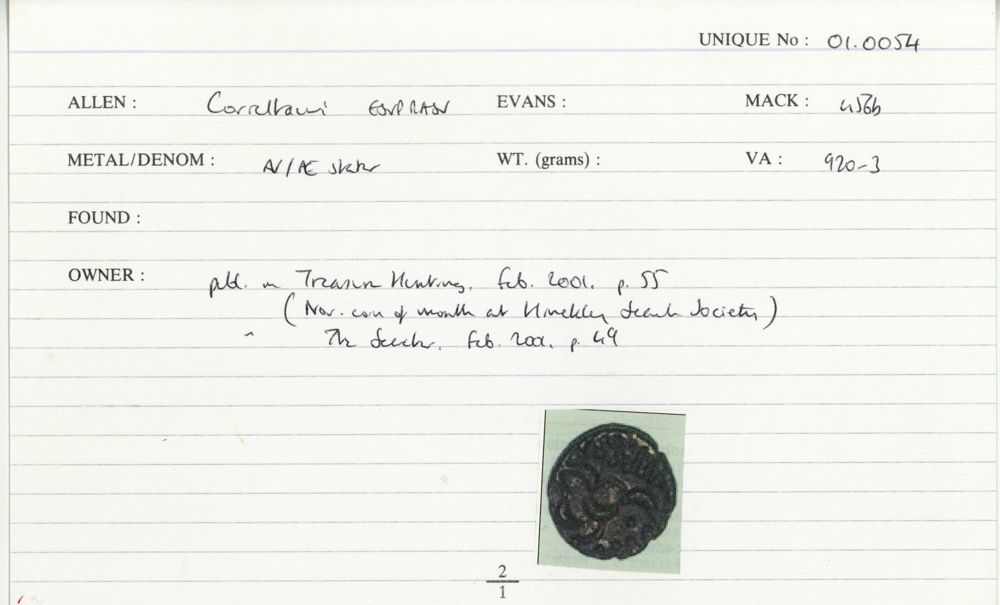 UNIQUE No : 01.0054
ALLEN : Corieltauvi ESVPRASV EVANS : MACK : 456b
METAL/DENOM : AV/Æ stater WT. (grams) : VA : 920-3
FOUND :
OWNER : pbd. in Treasure Hunting, Feb. 2001, p. 55
(Nov. coin of month at Hinckley Search Society)
" The Searcher, Feb. 2001, p. 49
2
1